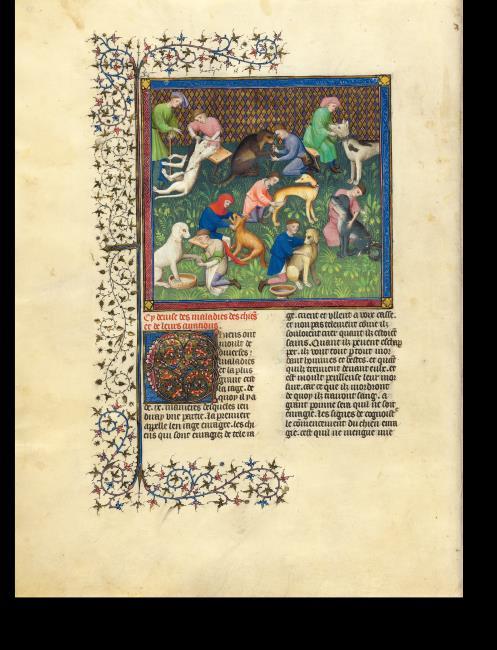 Cy deuise des maladies des chiẽs
et de leurs curacions.
Chiens ont
moult de
diuerses
maladies
et la plus
grant cest
la rage. de
quoy il y a
de .ix. manieres desquelles ien
diray vne partie. La premiere
appelle len rage enragee. les chi
ens qui sont enragiez de tele ra
ge. crient et vllent a voix casse.
et non pas telement cõme ilz
souloient crier quant ilz estoiẽt
sains. Quant ilz peuent eschap
per. ilz vont tout par tout mor
dant hommes et bestes. et quãt
quilz treuuent deuant eulx. et
est moult perilleuse leur mor
sure. car ce que ilz mordront
de quoy ilz trairont sang. a
grant poinne sera quil ne soit
enragié. les signes de cognoist
le cõmencement du chien enra
gié. cest quil ne mengue mie